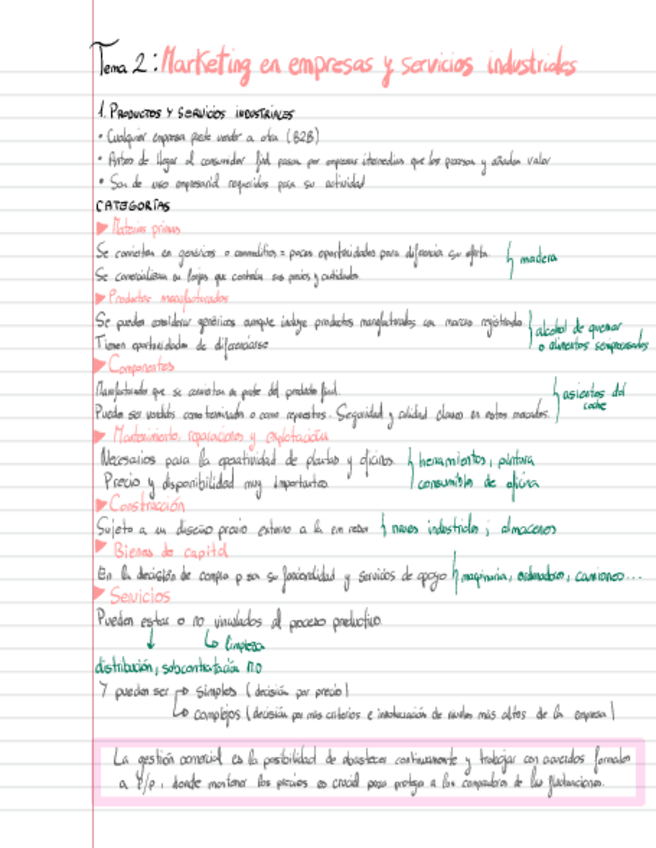 Tema 2: Marketing en empresas y servicios industriales
1. PRODUCTOS Y SERVICIOS INDUSTRIALES
• Cualquier empresa puede vender a otra (B2B)
• Antes de llegar al consumidor final pasan por empresas intermedias que los procesan y añaden valor
• Son de uso empresarial requeridos para su actividad
CATEGORÍAS
▶ Materias primas
Se convierten en genéricos o commodities = pocas oportunidades para diferenciar su oferta.
Se comercializan en lonjas que controlan sus precios y cantidades.
madera
▶ Productos manufacturados
Se pueden considerar genéricos aunque incluye productos manufacturados con marca registrada
Tienen oportunidades de diferenciarse
alcohol de quemar
o alimentos semiprocesados
▶ Componentes
Manufacturado que se convierten en parte del producto final.
Pueden ser vendidos como terminado o como repuestos. Seguridad y calidad claves en estos mercados.
asientos del
coche
▶ Mantenimiento, reparaciones y explotación
Necesarios para la operatividad de plantas y oficinas
Precio y disponibilidad muy importantes
herramientas, pintura
consumibles de oficina
▶ Construcción
Sujeto a un diseño previo externo a la naves industriales, almacenes
▶ Bienes de capital
En la decisión de compra su funcionalidad y servicios de apoyo maquinaria, ordenadores, camiones...
▶ Servicios
Pueden estar o no vinculados al proceso productivo.
↓ ↳ limpieza
distribución, subcontratación
Y pueden ser → simples (decisión por precio)
↳ complejos (decisión por más criterios e involucración de niveles más altos de la empresa)
La gestión comercial es la posibilidad de abastecer continuamente y trabajar con acuerdos formales
a l/p, donde mantener los precios es crucial para proteger a los compradores de las fluctuaciones.